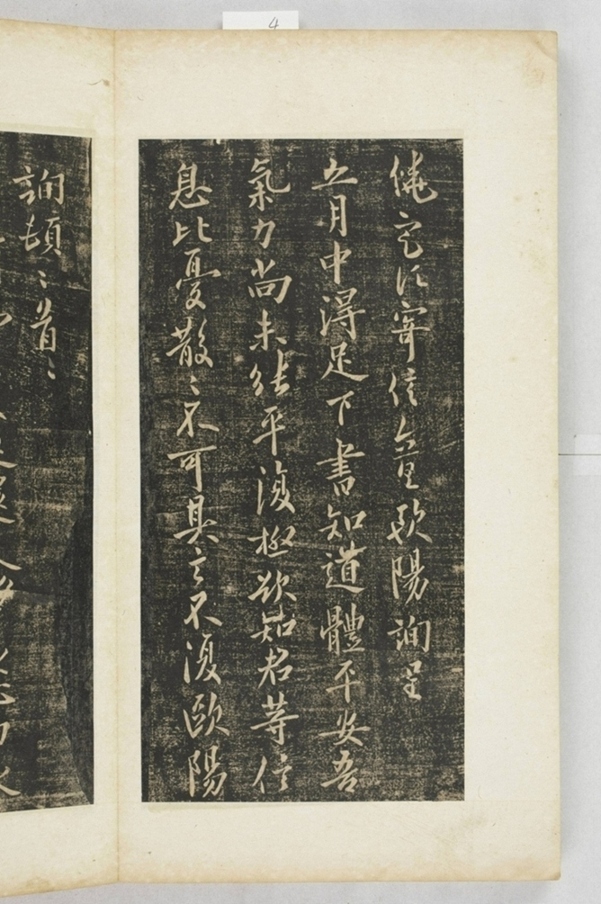 寄信歐陽詢呈
五月中得足下書知道體平安吾
氣力尚未能平復極欲知君等信
息比憂散〻不可具言不復歐陽
詢頓〻首〻